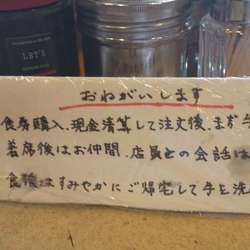 LET'S
おねがいします
食券購入、現金清算して注文後、まず手
着席後はお仲間、店員との会話は
食後はすみやかにご帰宅して手を洗